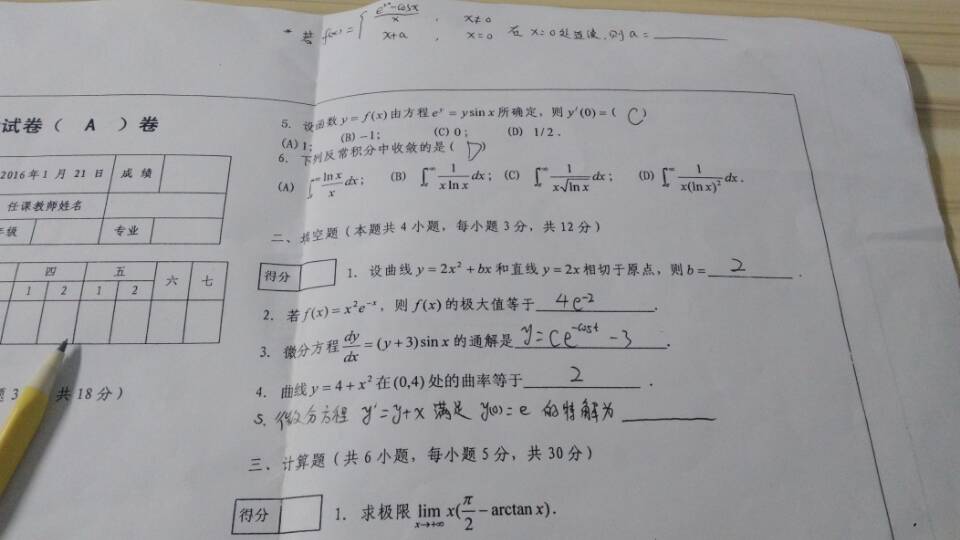 * 若 f(x) = { (e^x - cosx)/x , x≠0
x+a , x=0 在 x=0处连续，则 a = ______
试卷（ A ）卷
2016年1月21日 成绩
任课教师姓名
年级 专业
四 五 六 七
1 2 1 2
共18分）
5. 设函数 y = f(x) 由方程 e^y = y sin x 所确定，则 y'(0) = ( C )
(A) 1; (B) -1; (C) 0; (D) 1/2.
6. 下列反常积分中收敛的是 ( D )
(A) ∫ ln x/x dx; (B) ∫ 1/(x ln x) dx; (C) ∫ 1/(x√(ln x)) dx; (D) ∫ 1/(x(ln x)²) dx.
二、填空题（本题共 4 小题，每小题 3 分，共 12 分）
得分
1. 设曲线 y = 2x² + bx 和直线 y = 2x 相切于原点，则 b = 2 .
2. 若 f(x) = x²e^{-x}，则 f(x) 的极大值等于 4e^{-2} .
3. 微分方程 dy/dx = (y+3) sin x 的通解是 y = Ce^{-cosx} - 3 .
4. 曲线 y = 4 + x² 在 (0,4) 处的曲率等于 2 .
5. 微分方程 y' = y+x 满足 y(0) = e 的特解为 ______
三、计算题（共 6 小题，每小题 5 分，共 30 分）
得分
1. 求极限 lim_{x→+∞} x(π/2 - arctan x).